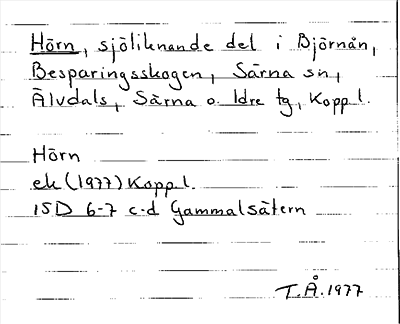 Hörn, sjöliknande del i Björnån,
Besparingsskogen, Särna sn,
Älvdals, Särna o. Idre tg, Kopp.l.
Hörn
ek (1977) Kopp.l.
15D 6-7 c-d Gammalsätern
T.Å. 1977